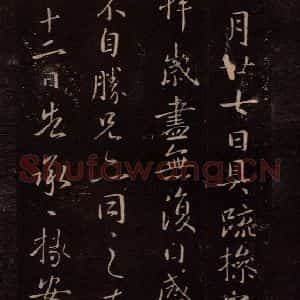 月廿七日具疏操
歲盡無復日感
不自勝兄同之
十二日告承掾安
Shufawang.CN